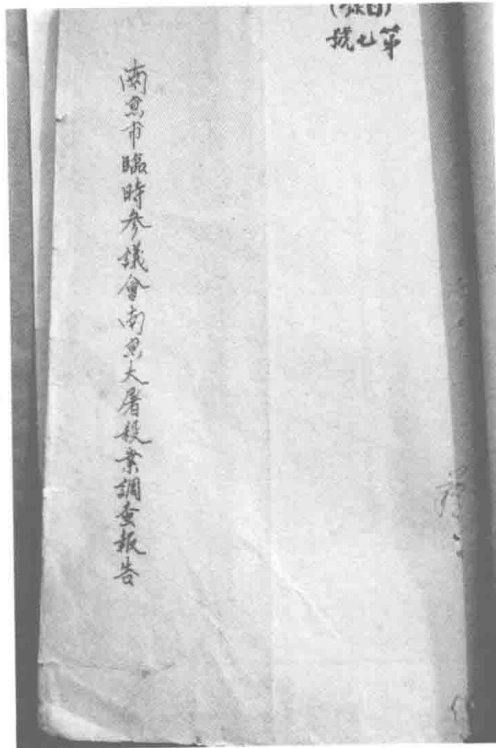 第七號
南京市臨時參議會南京大屠殺案調查報告